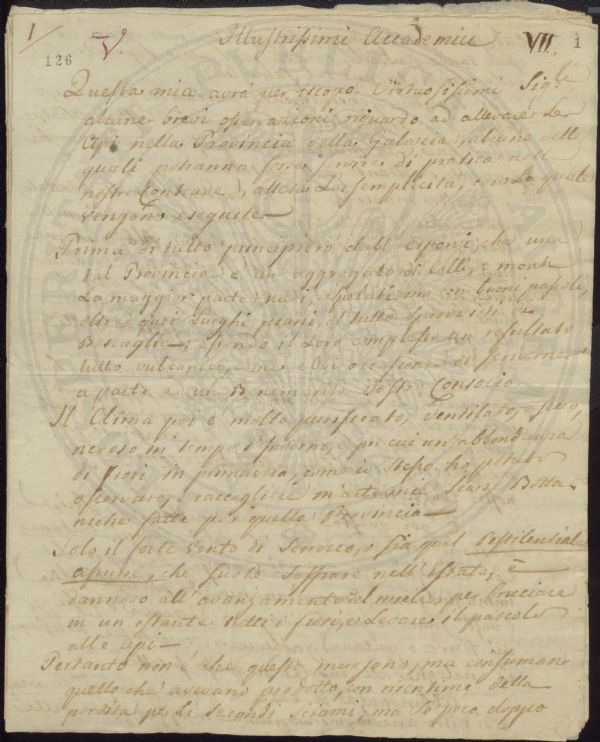 1/
126
V.
Illustrissimi Accademici
VII
1
Questa mia avrà per iscopo, Virtuosissimi Sig.ri
alcune brevi osservazioni riguardo ad allevare le
Api nella Provincia della Galazia, alcune delle
quali potranno forse servire di pratica nelle
nostre Contrade, attesa la semplicità, con la quale
vengono eseguite—
Prima di tutto principierò dall' esporvi, che una
tal Provincia è un' aggregato di Colli, e monti
La maggior parte nudi, e spelati ma con buoni pascoli,
oltre quei Luoghi piani, tutto sprovvisti di
Boscaglie; essendo il Loro complesso un resultato
tutto vulcanico, come ebbi occasione di scriverne
a parte ad un Benemerito vostro Consocio.
Il Clima poi è molto purificato, ventilato, e secco,
nevoso in tempo d'Inverno, e per cui un' abbondanza
di Fiori in primavera, come io stesso ho potuto
osservare, e raccogliere in arte mie scarse Botta-
niche fatte per quella Provincia—
Solo il forte vento di Scirocco, o sia quel Pestilentiale
apum, che suole soffiare nell' Estate, è
dannoso all' avanzamento del miele, per bruciare
in un istante tutti i fiori, e Levare il pascolo
alle Api—
Pertanto non è che queste muojono, ma consumano
quello che avevano prodotto, con nientime della
perdita per li secondi sciami, ma se poco doppo